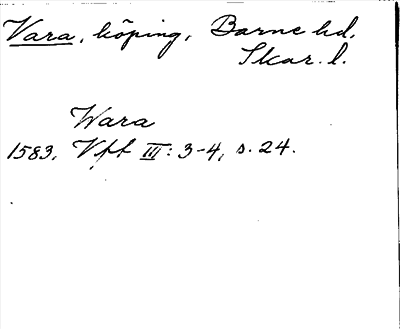 Vara, köping, Barne hd,
Skar. l.
Wara
1583. Vfft III: 3-4, s. 24.